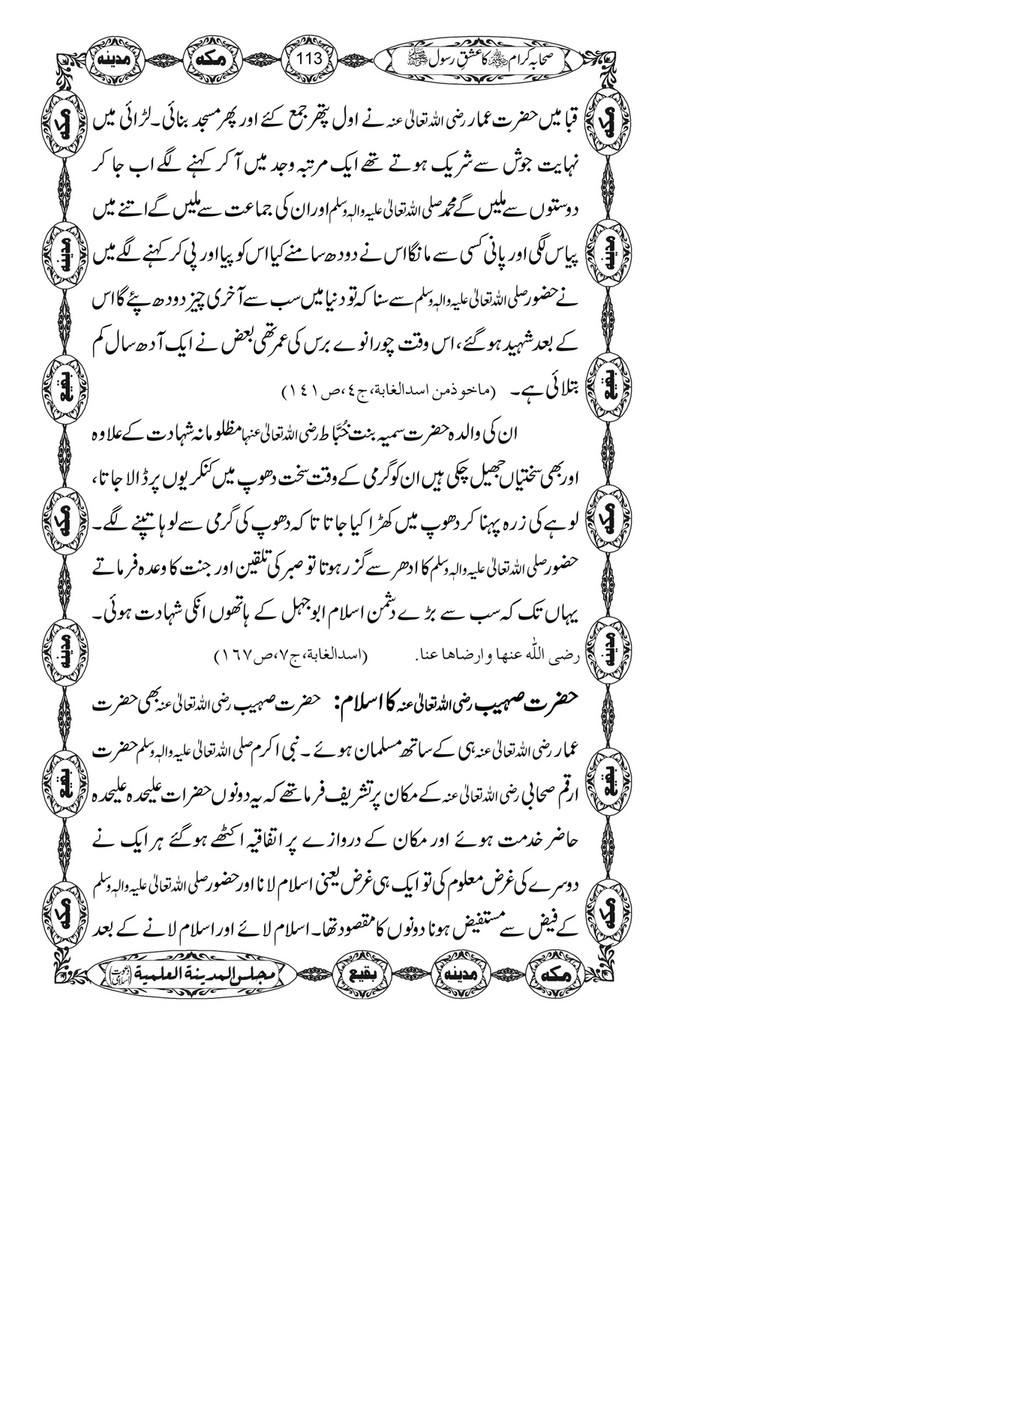 صحابہ کرام رضی اللہ عنہم کا عشق رسول ﷺ 113 مکہ مدینہ
قبا میں حضرت عمار رضی اللہ تعالیٰ عنہ نے اول پتھر جمع کئے اور پھر مسجد بنائی۔ لڑائی میں
نہایت جوش سے شریک ہوتے تھے ایک مرتبہ وجد میں آ کر کہنے لگے اب جا کر
دوستوں سے ملیں گے محمد صلی اللہ تعالیٰ علیہ والہٖ وسلم اور ان کی جماعت سے ملیں گے اتنے میں
پیاس لگی اور پانی کسی سے مانگا اس نے دودھ سامنے کیا اس کو پیا اور پی کر کہنے لگے میں
نے حضور صلی اللہ تعالیٰ علیہ والہٖ وسلم سے سنا کہ تو دنیا میں سب سے آخری چیز دودھ پئے گا اس
کے بعد شہید ہو گئے، اس وقت چورانوے برس کی عمر تھی بعض نے ایک آدھ سال کم
بتلائی ہے۔ (ماخوذ من اسدالغابة، ج٤، ص١٤١)
ان کی والدہ حضرت سمیہ بنت خُبَّاط رضی اللہ تعالیٰ عنہا مظلومانہ شہادت کے علاوہ
اور بھی سختیاں جھیل چکی ہیں ان کو گرمی کے وقت سخت دھوپ میں کنکریوں پر ڈالا جاتا،
لوہے کی زرہ پہنا کر دھوپ میں کھڑا کیا جاتا تا کہ دھوپ کی گرمی سے لوہا تپنے لگے۔
حضور صلی اللہ تعالیٰ علیہ والہٖ وسلم کا ادھر سے گزر ہوتا تو صبر کی تلقین اور جنت کا وعدہ فرماتے
یہاں تک کہ سب سے بڑے دشمن اسلام ابوجہل کے ہاتھوں انکی شہادت ہوئی۔
رضی اللّٰه عنها وارضاها عنا. (اسدالغابة، ج٧، ص١٦٧)
حضرت صہیب رضی اللہ تعالیٰ عنہ کا اسلام: حضرت صہیب رضی اللہ تعالیٰ عنہ بھی حضرت
عمار رضی اللہ تعالیٰ عنہ ہی کے ساتھ مسلمان ہوئے۔ نبی اکرم صلی اللہ تعالیٰ علیہ والہٖ وسلم حضرت
ارقم صحابی رضی اللہ تعالیٰ عنہ کے مکان پر تشریف فرما تھے کہ یہ دونوں حضرات علیحدہ علیحدہ
حاضر خدمت ہوئے اور مکان کے دروازے پر اتفاقیہ اکٹھے ہو گئے ہر ایک نے
دوسرے کی غرض معلوم کی تو ایک ہی غرض یعنی اسلام لانا اور حضور صلی اللہ تعالیٰ علیہ والہٖ وسلم
کے فیض سے مستفیض ہونا دونوں کا مقصود تھا۔ اسلام لائے اور اسلام لانے کے بعد
مکہ مدینہ بقیع مجلس المدینة العلمیة (دعوت اسلامی)
مکہ
مدینہ
بقیع
مکہ
مدینہ
بقیع
مکہ
مکہ
مدینہ
بقیع
مکہ
مدینہ
بقیع
مکہ